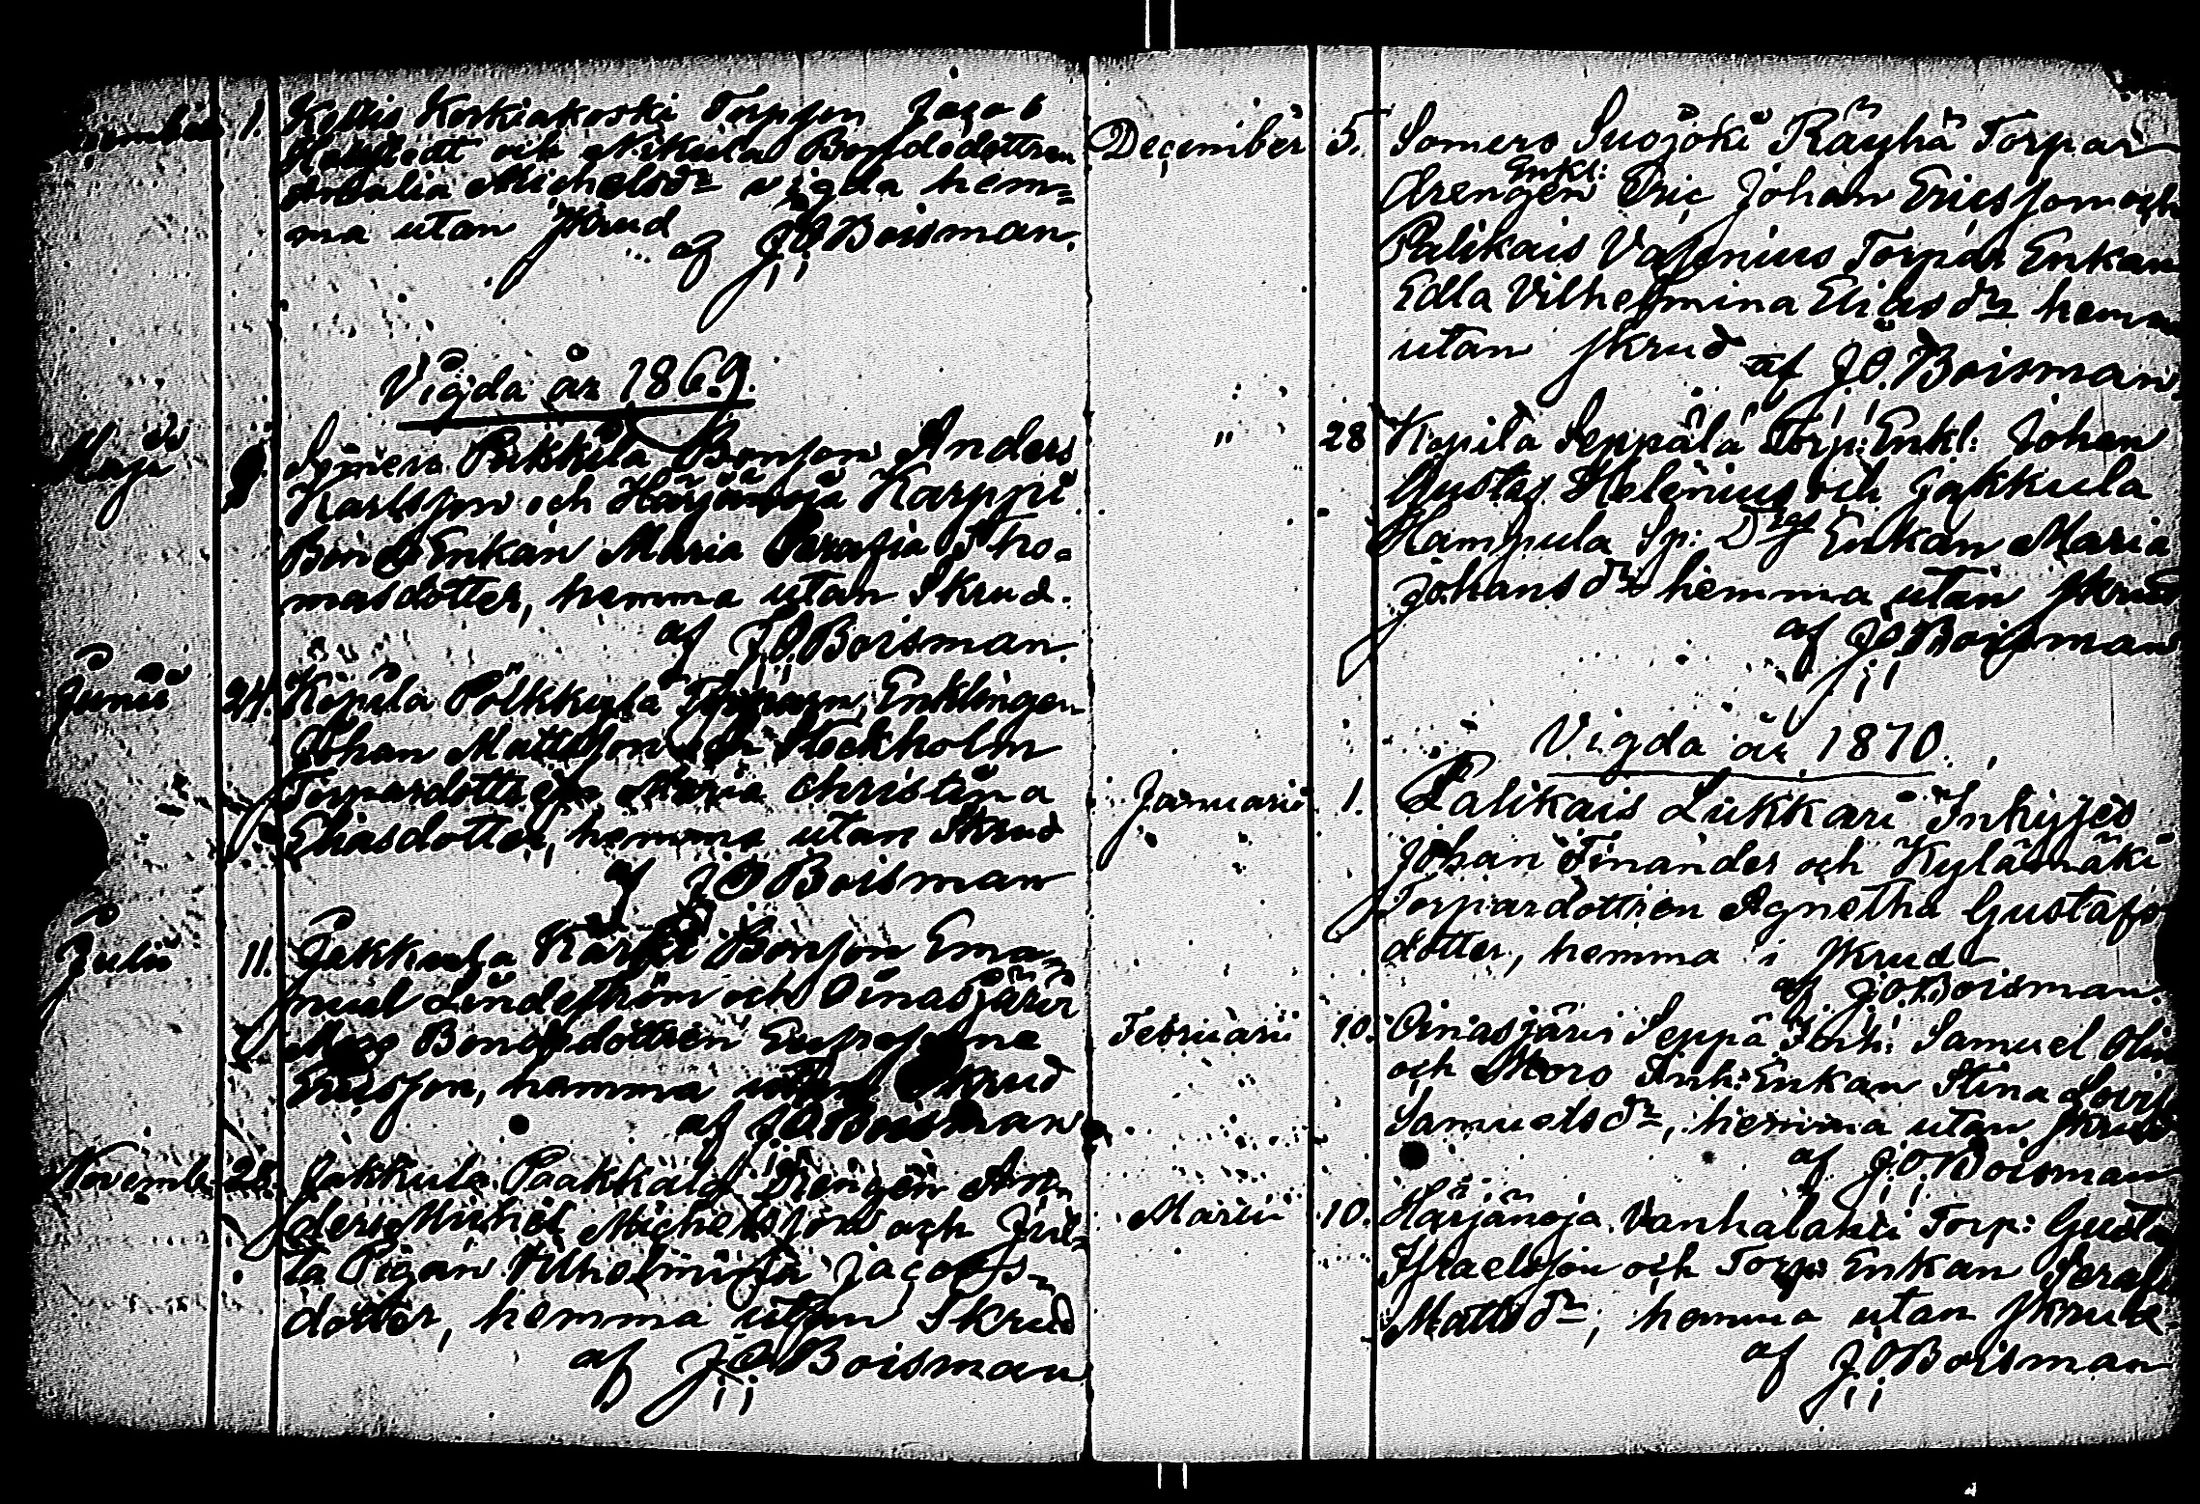 1. Kollis Korkiakoski Torpson Jacob
och Nikula Bondedottren
Michelsdr vigda hem-
ma utan skrud
af J O Boisman.
Vigda år 1869.
Maji Somero Pukkila Bonson Anders
Karlsson och Härjänoja Karppi
Bond Enkan Maria Serafia Tho-
masdotter, hemma utan Skrud.
af J. O. Boisman.
Junii 24. Kopila Pölkkylä Enklingen
Johan Mattsson och Stockholm
Torpardottren Maria Christina
Eliasdotter, hemma utan Skrud
af J O Boisman
Julii 11. Jakkula Bonson Ema-
nuel Lindeström och Oinasjärvi
Bondedottren
hemma utan Skrud
af J O Boisman
November 28. Jakkula Paakkala Drengen An-
ders Michel Michelsson och Jul-
ta Pigan Vilhelmina Jacobs-
dotter, hemma utan Skrud
af J O Boisman
December 5. Somero Suojoki Räyhä Torpar
Enkl:
Drengen Eric Johan Ericsson och
Palikais Valenius Torpar Enkan
Edla Vilhelmina Eliasdr hemma
utan skrud af J O. Boisman.
" 28 Kopila Seppälä Torp: Enkl: Johan
Gustaf Helenius och Jakkula
Hampula Sp: Enkan Maria
Johansdr hemma utan skrud
af J O. Boisman
Vigda år 1870.
Januarii 1. Palikais Lukkari Inhyses
Johan Finander och Kylämäki
Torpardottren Agnetha Gustafs
dotter, hemma i skrud
af J. O. Boisman.
Februarii 10. Oinasjärvi Seppä Inh: Samuel Olin
och Moro Inh: Enkan Stina Lovis
Samuelsdr, hemma utan skrud
af J. O. Boisman
Martii 10. Härjänoja Vanhalakki Torp: Gusta
Israelsson och Torp Enkan Serafi
Mattsdr; hemma utan skrud.
af J O Boisman